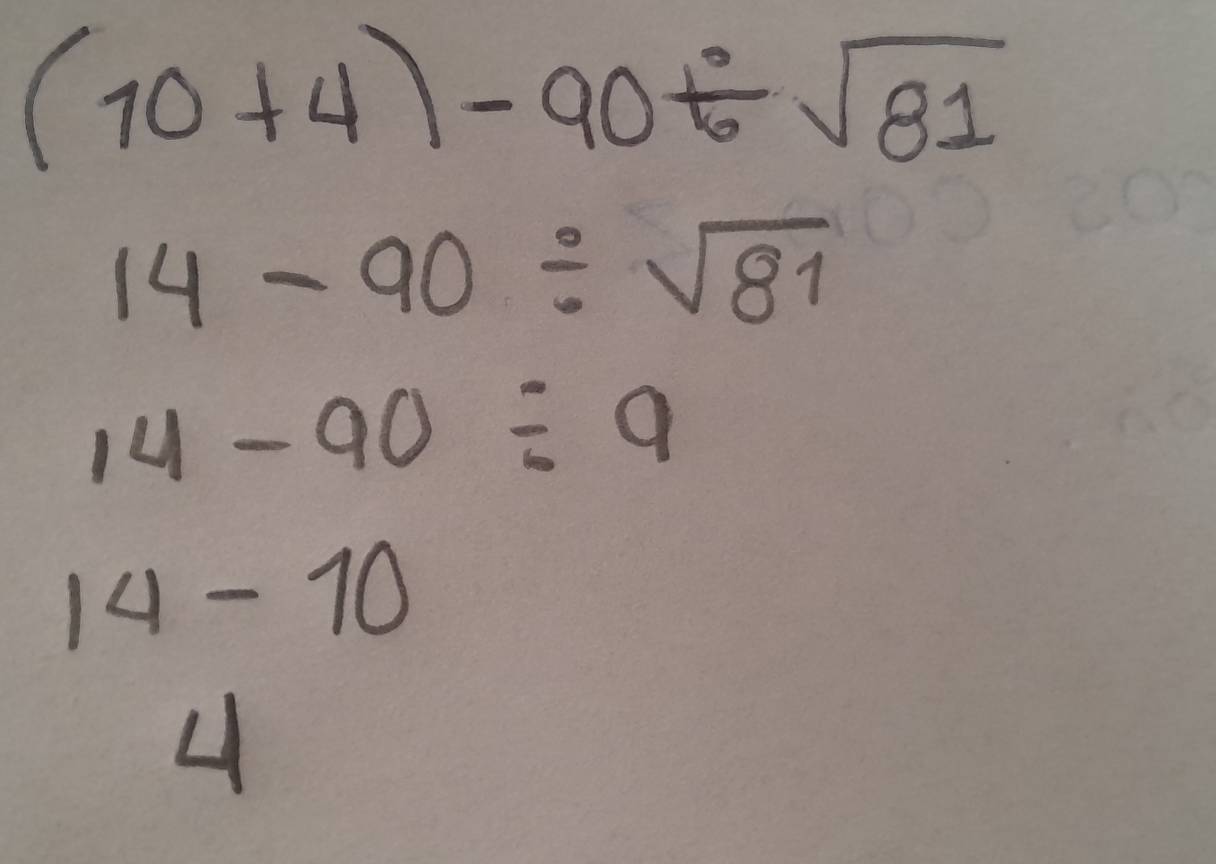 (10+4)-90÷√81
14-90÷√81
14-90÷9
14-10
4